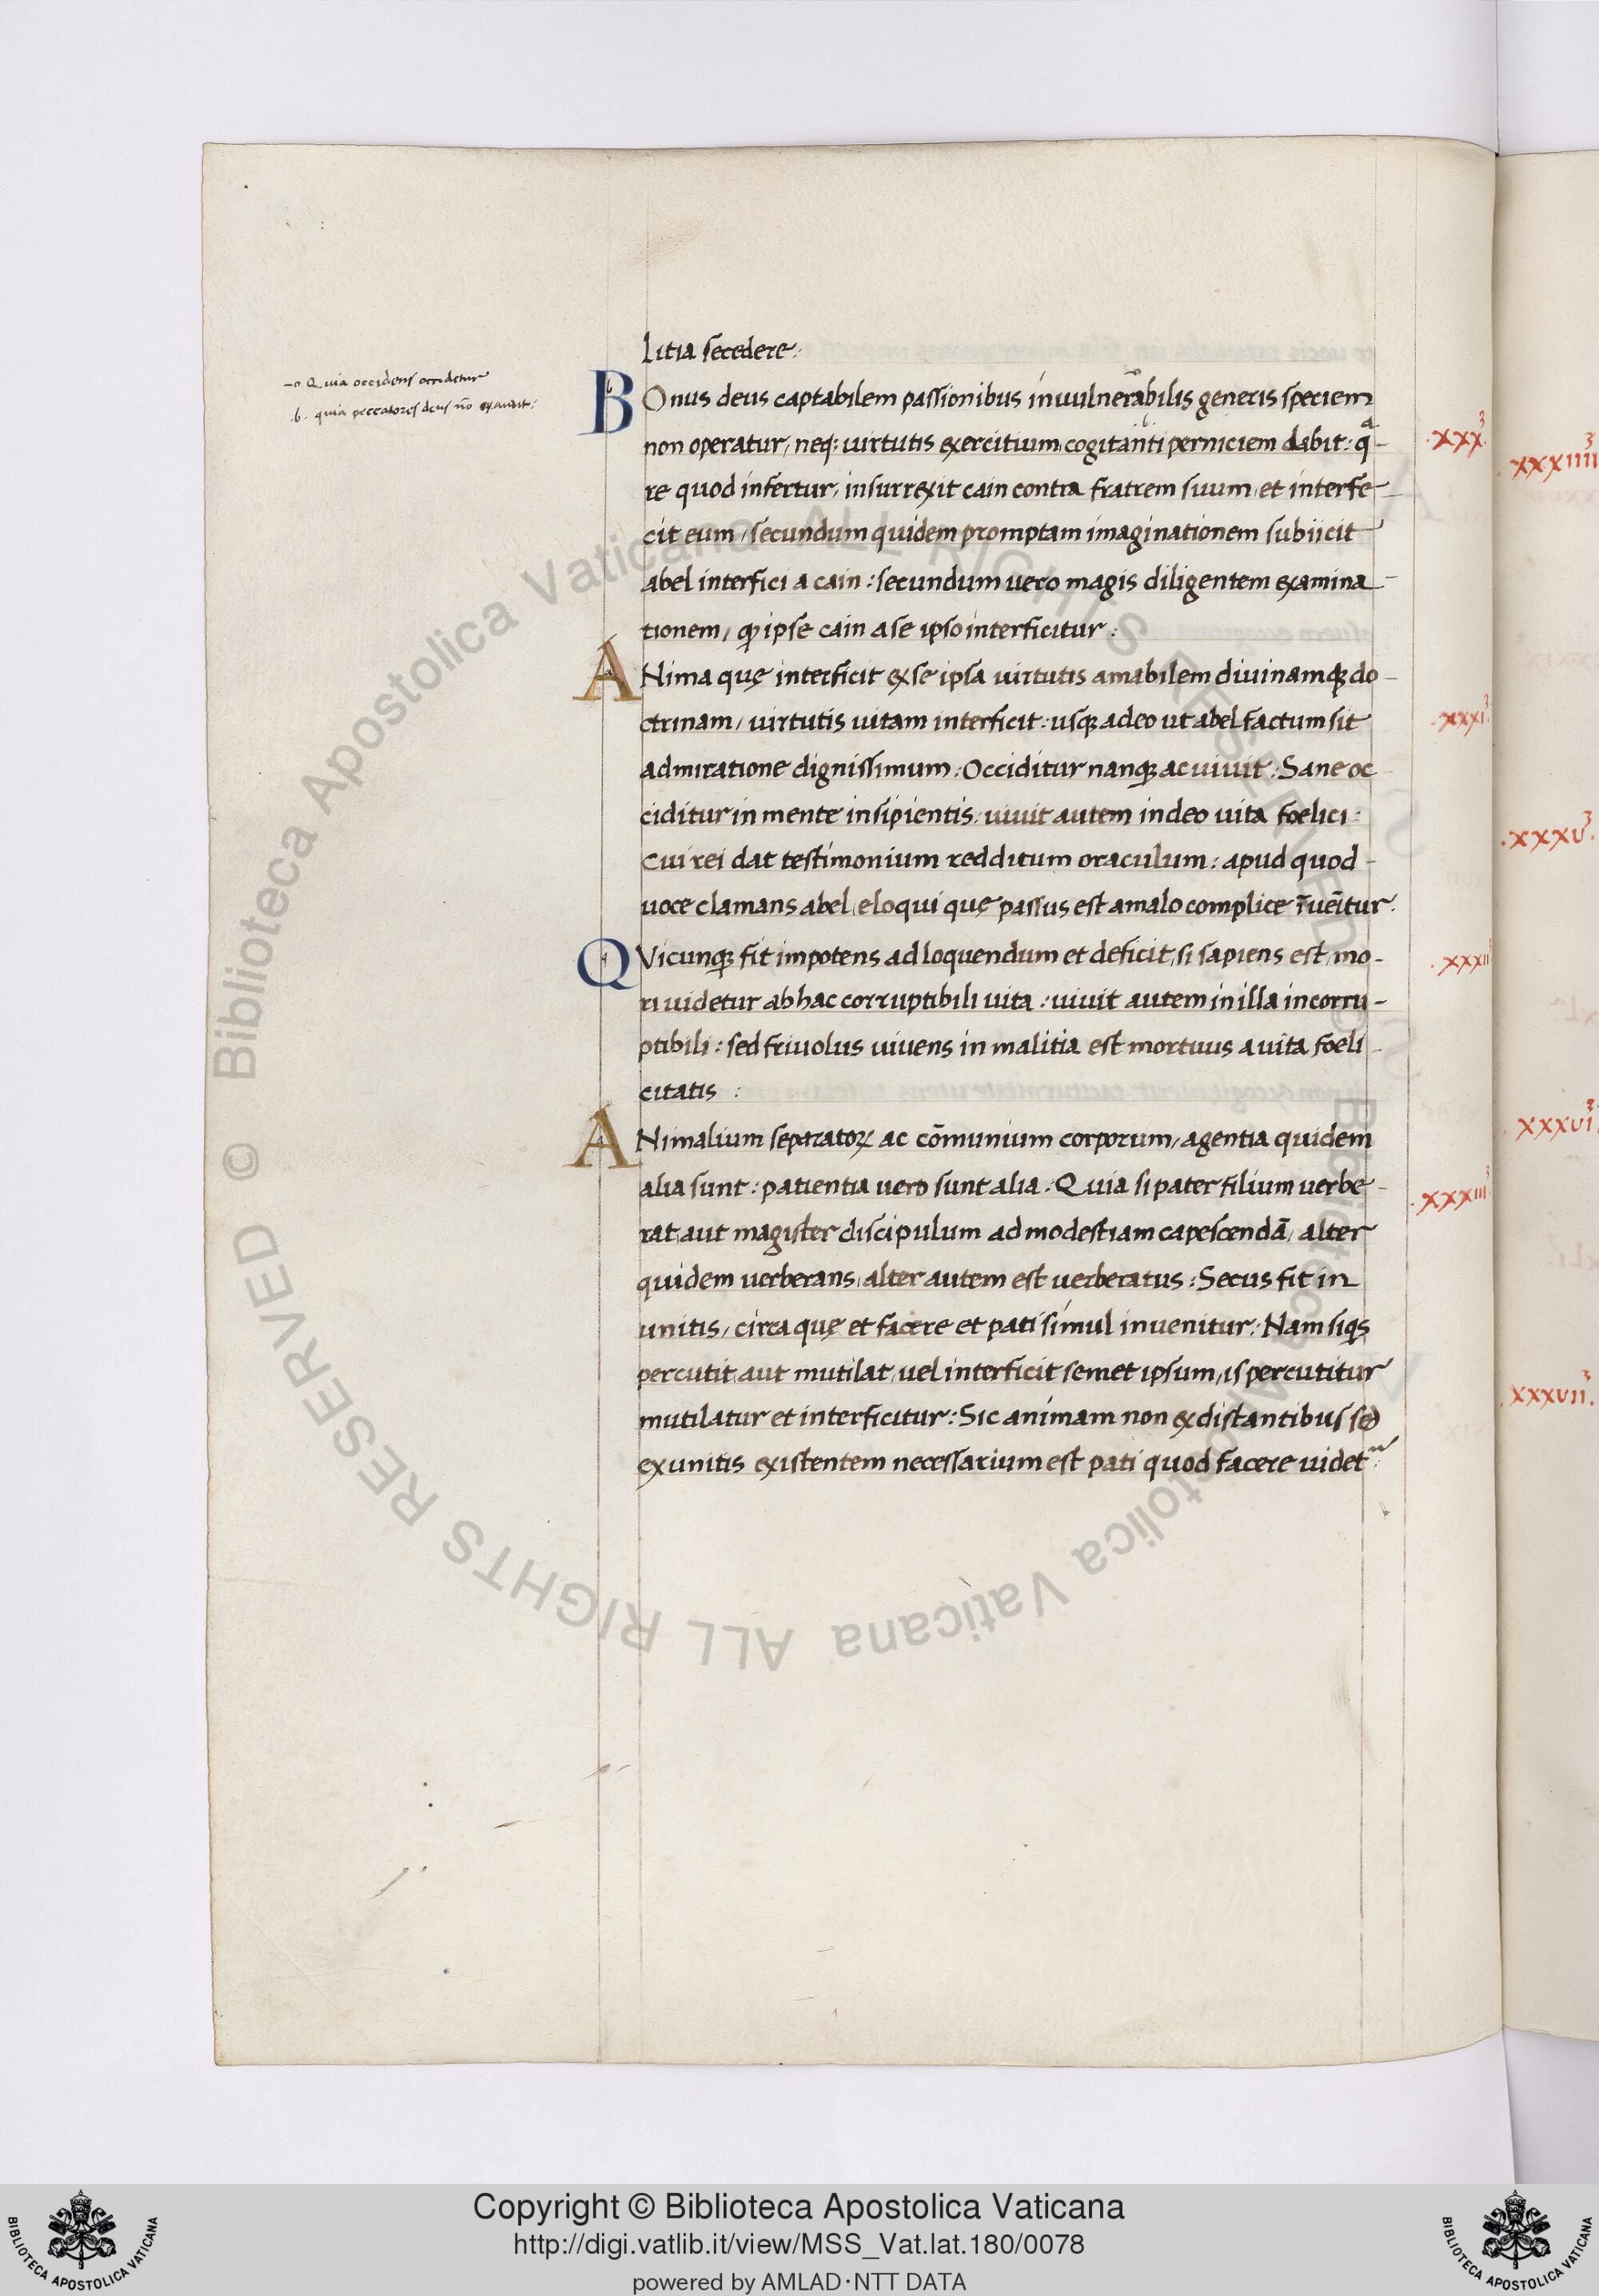 litia secedere:
-a Quia occidens occidetur
.b. quia peccatores deus nō exaudit:
BOnus deus captabilem passionibus inuulnerabilis generis speciem
non operatur, neq; uirtutis exercitium cogitanti perniciem dabit: q̄-
.xxx.
re quod infertur, insurrexit cain contra fratrem suum, et interfe-
cit eum, secundum quidem promptam imaginationem subiicit
abel interfici a cain: secundum uero magis diligentem examina-
tionem, ꝙ ipse cain a se ipso interficitur:
ANima quę interficit ex se ipsa uirtutis amabilem diuinamq; do-
ctrinam, uirtutis uitam interficit: usq; adeo ut abel factum sit
.xxxi.
admiratione dignissimum: Occiditur nanq; ac uiuit: Sane oc
ciditur in mente insipientis, uiuit autem in deo uita foelici:
Cui rei dat testimonium redditum oraculum: apud quod-
uoce clamans abel, eloqui quę passus est a malo complice īuēitur.
QVicunq; fit impotens ad loquendum et deficit, si sapiens est, mo-
.xxxii
ri uidetur ab hac corruptibili uita: uiuit autem in illa incorru-
ptibili: sed friuolus uiuens in malitia est mortuus a uita foeli-
citatis:
ANimalium separatoꝝ ac cōmunium corporum, agentia quidem
alia sunt: patientia uero sunt alia: Quia si pater filium uerbe-
.xxxiii.
rat, aut magister discipulum ad modestiam capescendā, alter
quidem uerberans, alter autem est uerberatus: Secus fit in
unitis, circa quę et facere et pati simul inuenitur: Nam siqs
percutit, aut mutilat, uel interficit semet ipsum, is percutitur
mutilatur et interficitur: Sic animam non ex distantibus sed
ex unitis existentem necessarium est pati quod facere uidet^r:
.xxxiiii
.xxxv.
.xxxvi
.xxxvii.
© Biblioteca Apostolica Vaticana ALL RIGHTS RESERVED
© Biblioteca Apostolica Vaticana ALL RIGHTS RESERVED
Copyright © Biblioteca Apostolica Vaticana
http://digi.vatlib.it/view/MSS_Vat.lat.180/0078
powered by AMLAD·NTT DATA
BIBLIOTECA APOSTOLICA VATICANA
BIBLIOTECA APOSTOLICA VATICANA